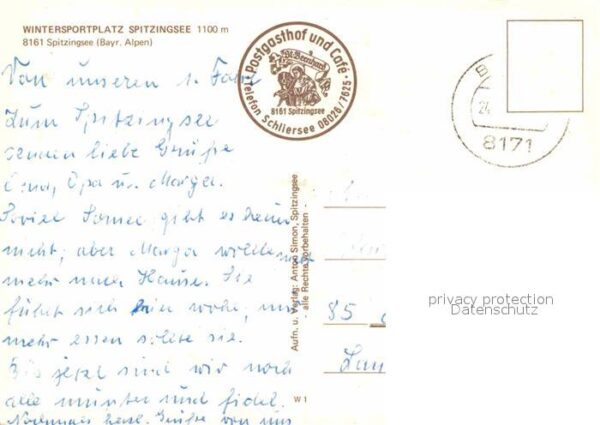 WINTERSPORTPLATZ SPITZINGSEE 1100 m
8161 Spitzingsee (Bayr. Alpen)
Postgasthof und Café
St. Bernhard
8161 Spitzingsee
Telefon Schliersee 08026/7625
24
8171
Von unseren 1. Fahrt
zum Spitzingsee
senden liebe Grüße
Oma, Opa u. Marga.
Soviel Sonne gibt es heuer
nicht, aber Marga wollte noch
nicht nach Hause. Sie
fühlt sich hier wohl, nur
mehr essen sollte sie.
Bis jetzt sind wir noch
alle munter und fidel.
Nochmals herzl. Grüße von uns
Aufn. u. Verlag: Anton Simon, Spitzingsee
alle Rechte vorbehalten
W 1
85
privacy protection
Datenschutz